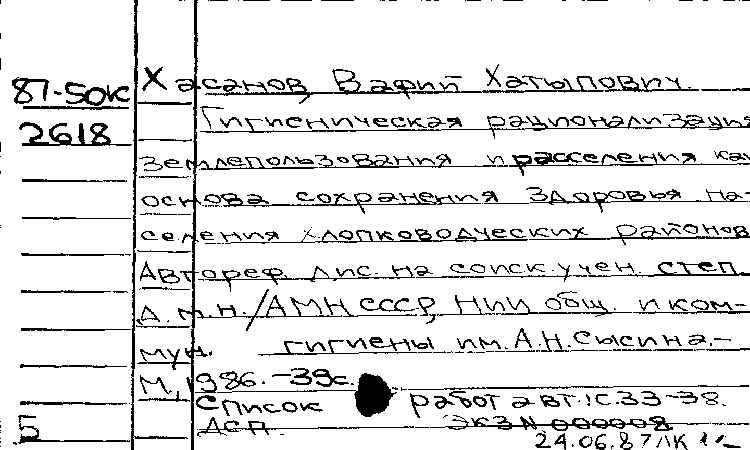 87-50к Хасанов, Вафий Хатыпович.
2618 Гигиеническая рационализация
землепользования и расселения как
основа сохранения здоровья на-
селения хлопководческих районов
Автореф. дис. на соиск. учен. степ.
д.м.н./АМН СССР, НИИ общ. и ком-
мун. гигиены им. А.Н. Сысина.-
М., 1986.-39с.
Список работ авт.: С.33-38.
5 ДСП. Экз N 000008
24.06.87